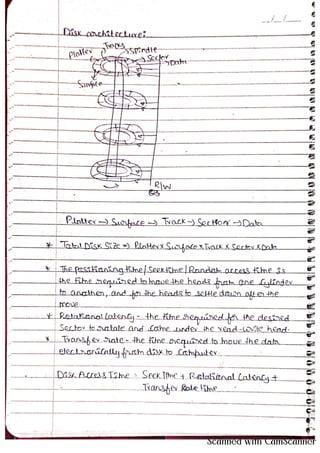 Disk architecture:
Platter Track Spindle
Sector
Data
Surface
R/W
Platter → Surface → Track → Sector → Data
* Total Disk Size => Platter x Surface x Track x Sector x Data
* The positioning time / Seek time / Random access time is
the time required to move the heads from one Cylinder
to another, and for the heads to settle down after the
move
* Rotational Latency - the time required for the desired
Sector to rotate and come under the read-write head.
* Transfer rate - the time required to move the data
electronically from disk to Computer.
Disk Access Time = Seek Time + Rotational Latency +
Transfer Rate Time
Scanned with CamScanner